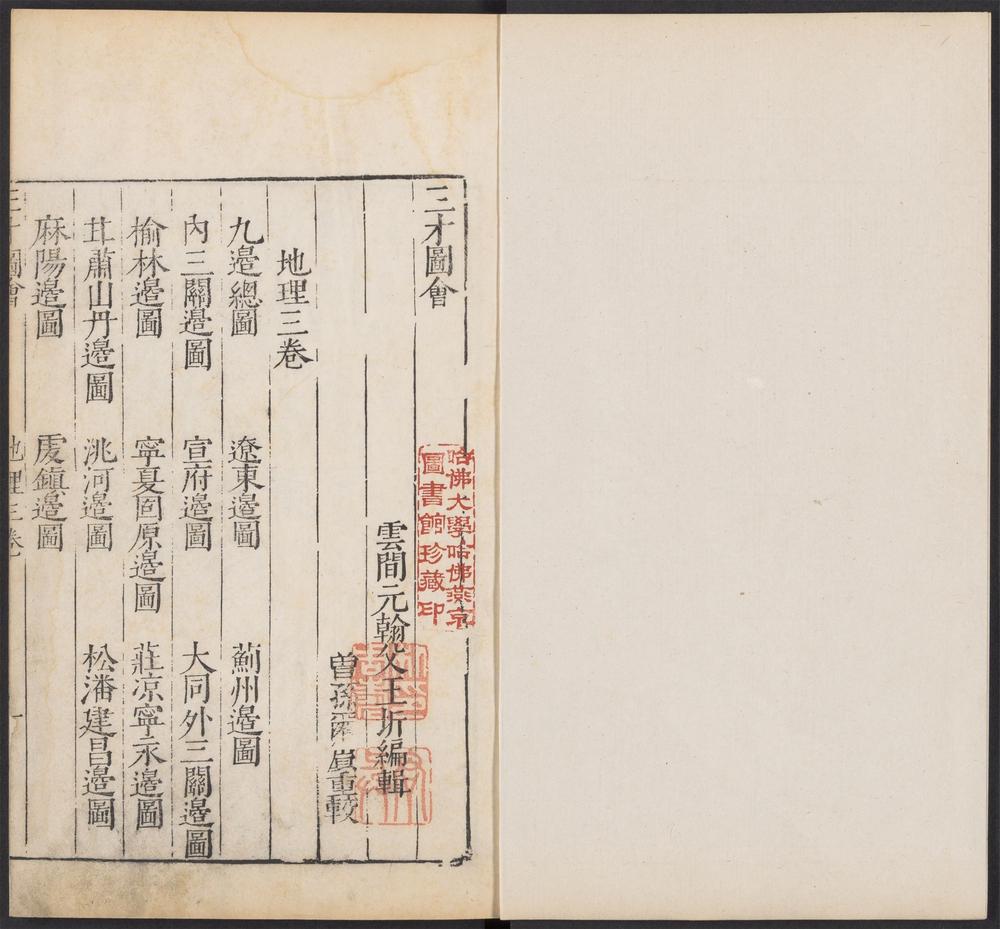 三才圖會
雲間元翰父王圻編輯
曾孫爾賔重較
地理三卷
九邉總圖 遼東邉圖 薊州邉圖
內三關邉圖 宣府邉圖 大同外三關邉圖
榆林邉圖 寧夏固原邉圖 莊凉寧永邉圖
甘肅山丹邉圖 洮河邉圖 松潘建昌邉圖
麻陽邉圖 虔鎮邉圖
三才圖會 地理三卷 一
哈佛大學哈佛燕京
圖書館珍藏印